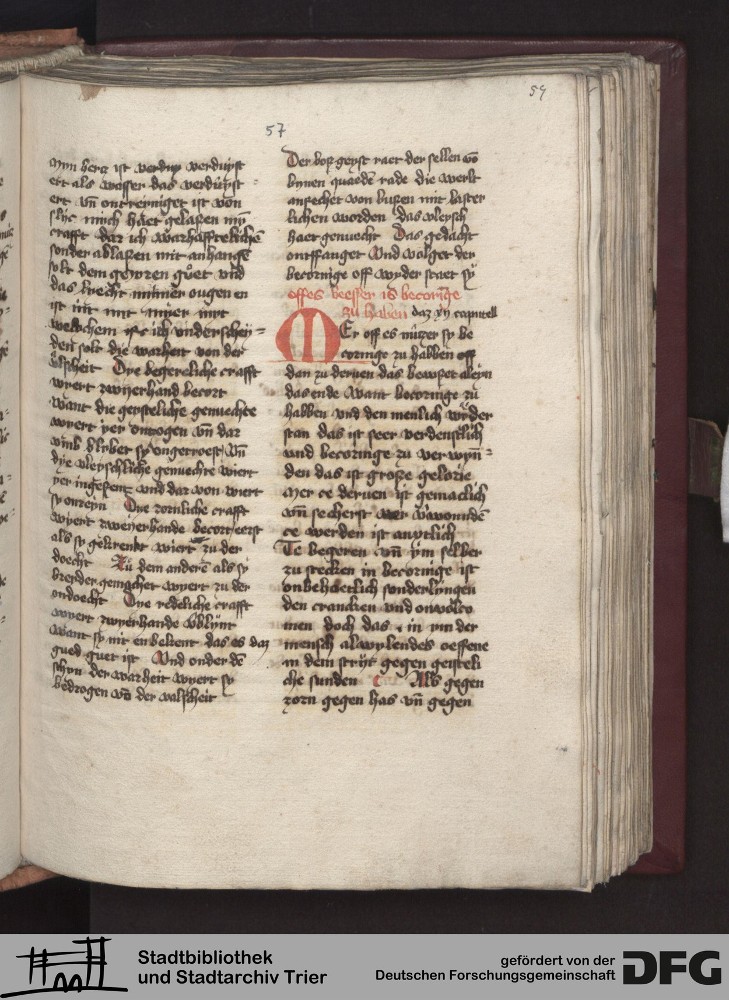 57
59
myn hercz ist verdup verduyst
ert als wasser das verduyst
ert vn ontreiniget ist von
slyc mich haet gelaßen myn
crafft dar ich warhafftelichē
sonder ablaßen mit anhangē
solt dem gewren guet vnd
das liecht mimner ougen en
ist nit mit myer mit
welchem ich vnderschey=
den solt die warheit von der
valscheit Dye begereliche crafft
wyert zwyerhand becort
want die geysteliche genuechte
wyert yer ontzogen vn dar
vmb blyber sy ongetroest vn
dye vleyschliche genuechte wiert
yer ingesent vnd dar von wiert
sy onreyn Dye zornliche crafft
wyert zweyerhande becort eerst
als sy gekrenkt wiert zu der
doecht Zu dem anderē als sy
breyder gemachet wyert zu der
ondoecht Dye redeliche crafft
wyert zwyerhande vblynt
want sy nit enbekent das es daz
gued guet ist Vnd onder dē
schyn der warheit wyert sy
bedrogen vō der valscheit
Der boß geyst raet der sellen vō
bynen quaedē rade die werlt
anfechet von bußen mit laster
lichen worden das vleysch
haet genuecht Das gedacht
ontffanget Vnd volget der
becoringe off wyder staet sy
offes besser is becoringe
zu haben daz xv capittell
MEr off es nutzer sy be
coringe zu habben off
dan zu derven das bewyset aleyn
das ende Want becoringe zu
habben vnd den menlich wyder
stan das ist seer verdenstlich
vnd becoringe zu verwyn=
den das ist große gelorie
Mer ce derven ist gemaclich
vn secherst mer vwonnidē
ce werden ist anxtlich
Te begeren vn ym selber
zu stecken in becoringe ist
onbehoetlich sonderlyngen
den crancken vnd onvolco
men doch das in mnder
mensch alwylendes oeffene
in dem stryt gegen geisteli
che sunden Als gegen
zorn gegen has vn gegen
Stadtbibliothek
und Stadtarchiv Trier
gefördert von der
Deutschen Forschungsgemeinschaft
DFG